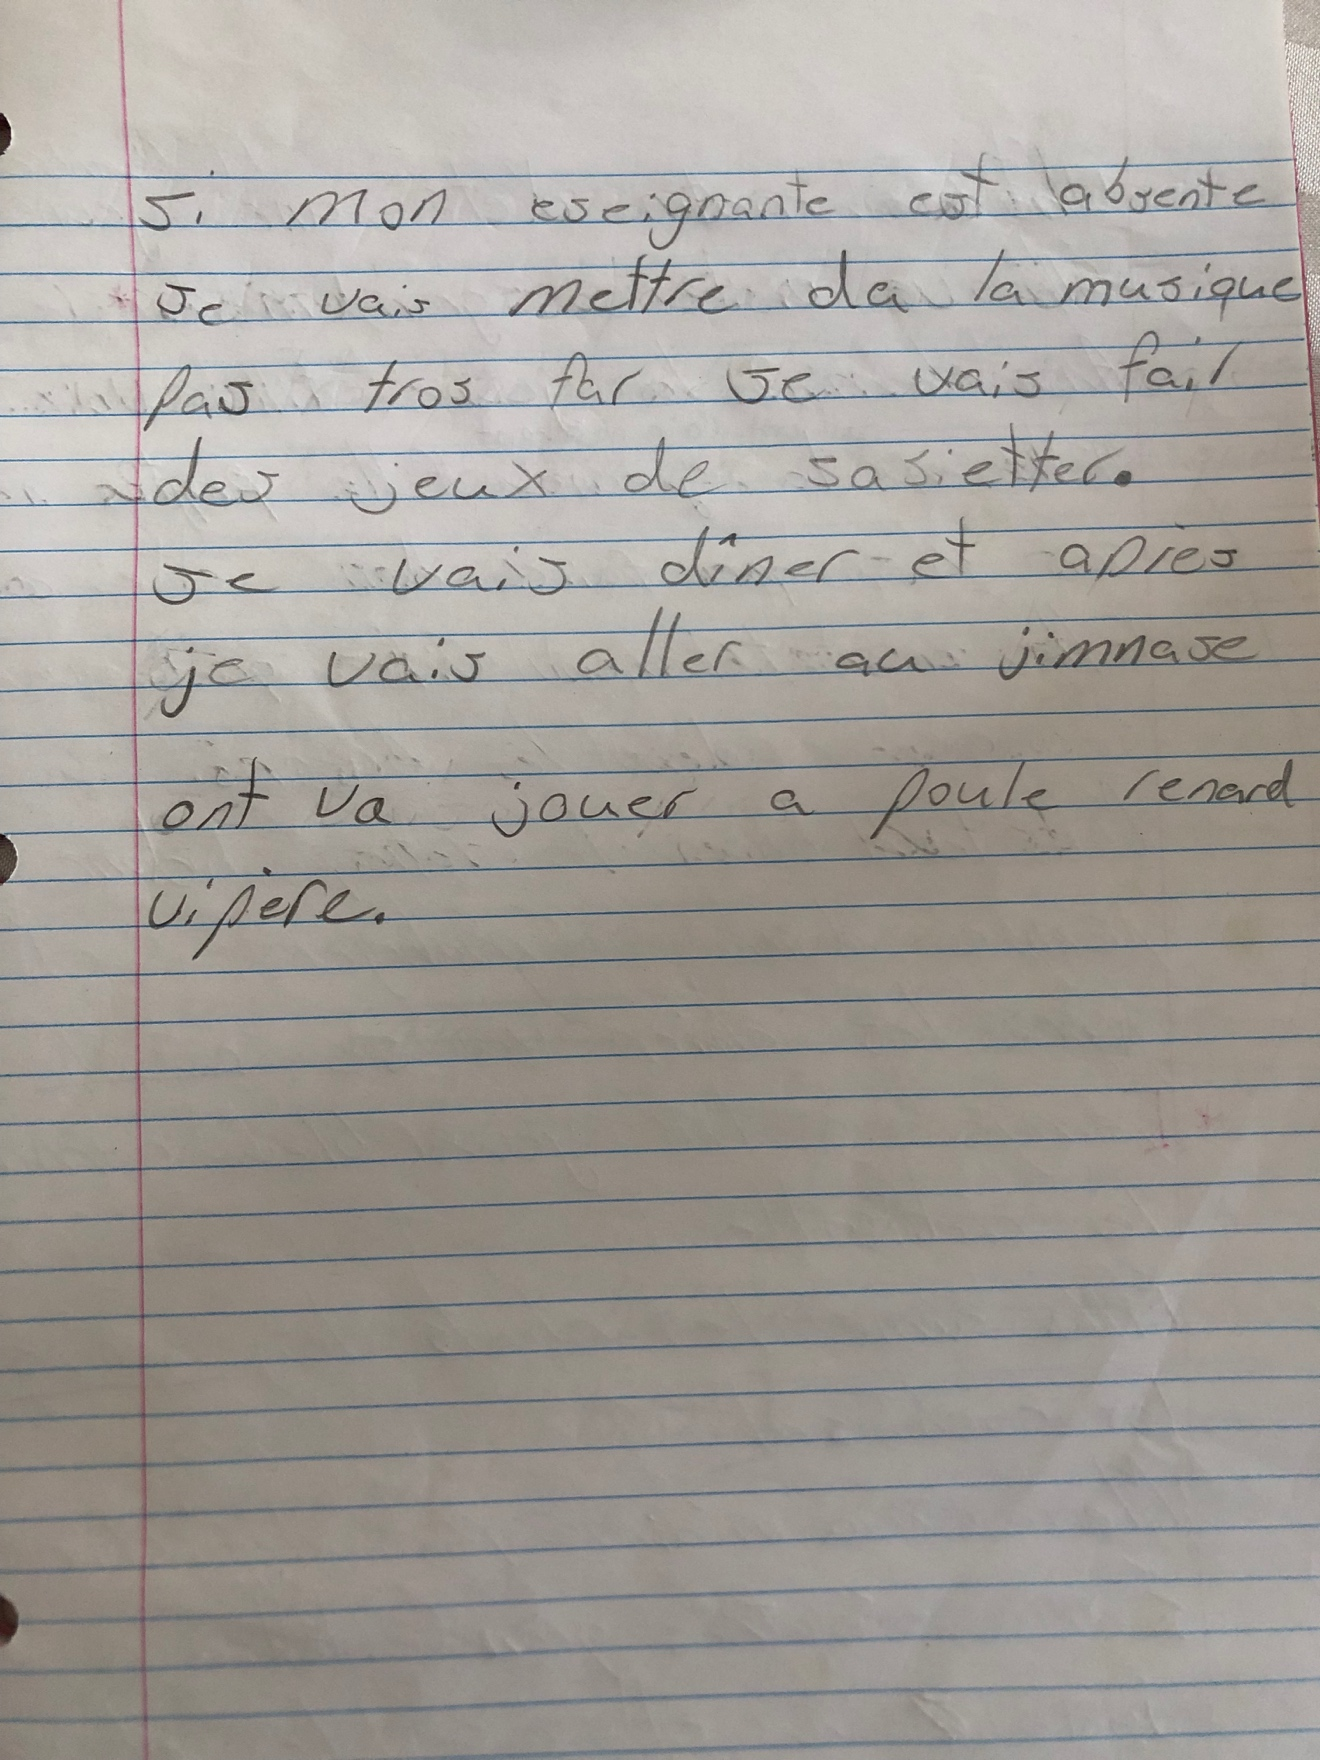 Si mon eseignante est absente
Je vais mettre da la musique
pas tros far Je vais fair
des jeux de sasietter.
Je vais dîner et après
je vais aller au jimnase
ont va jouer a poule renard
vipère.